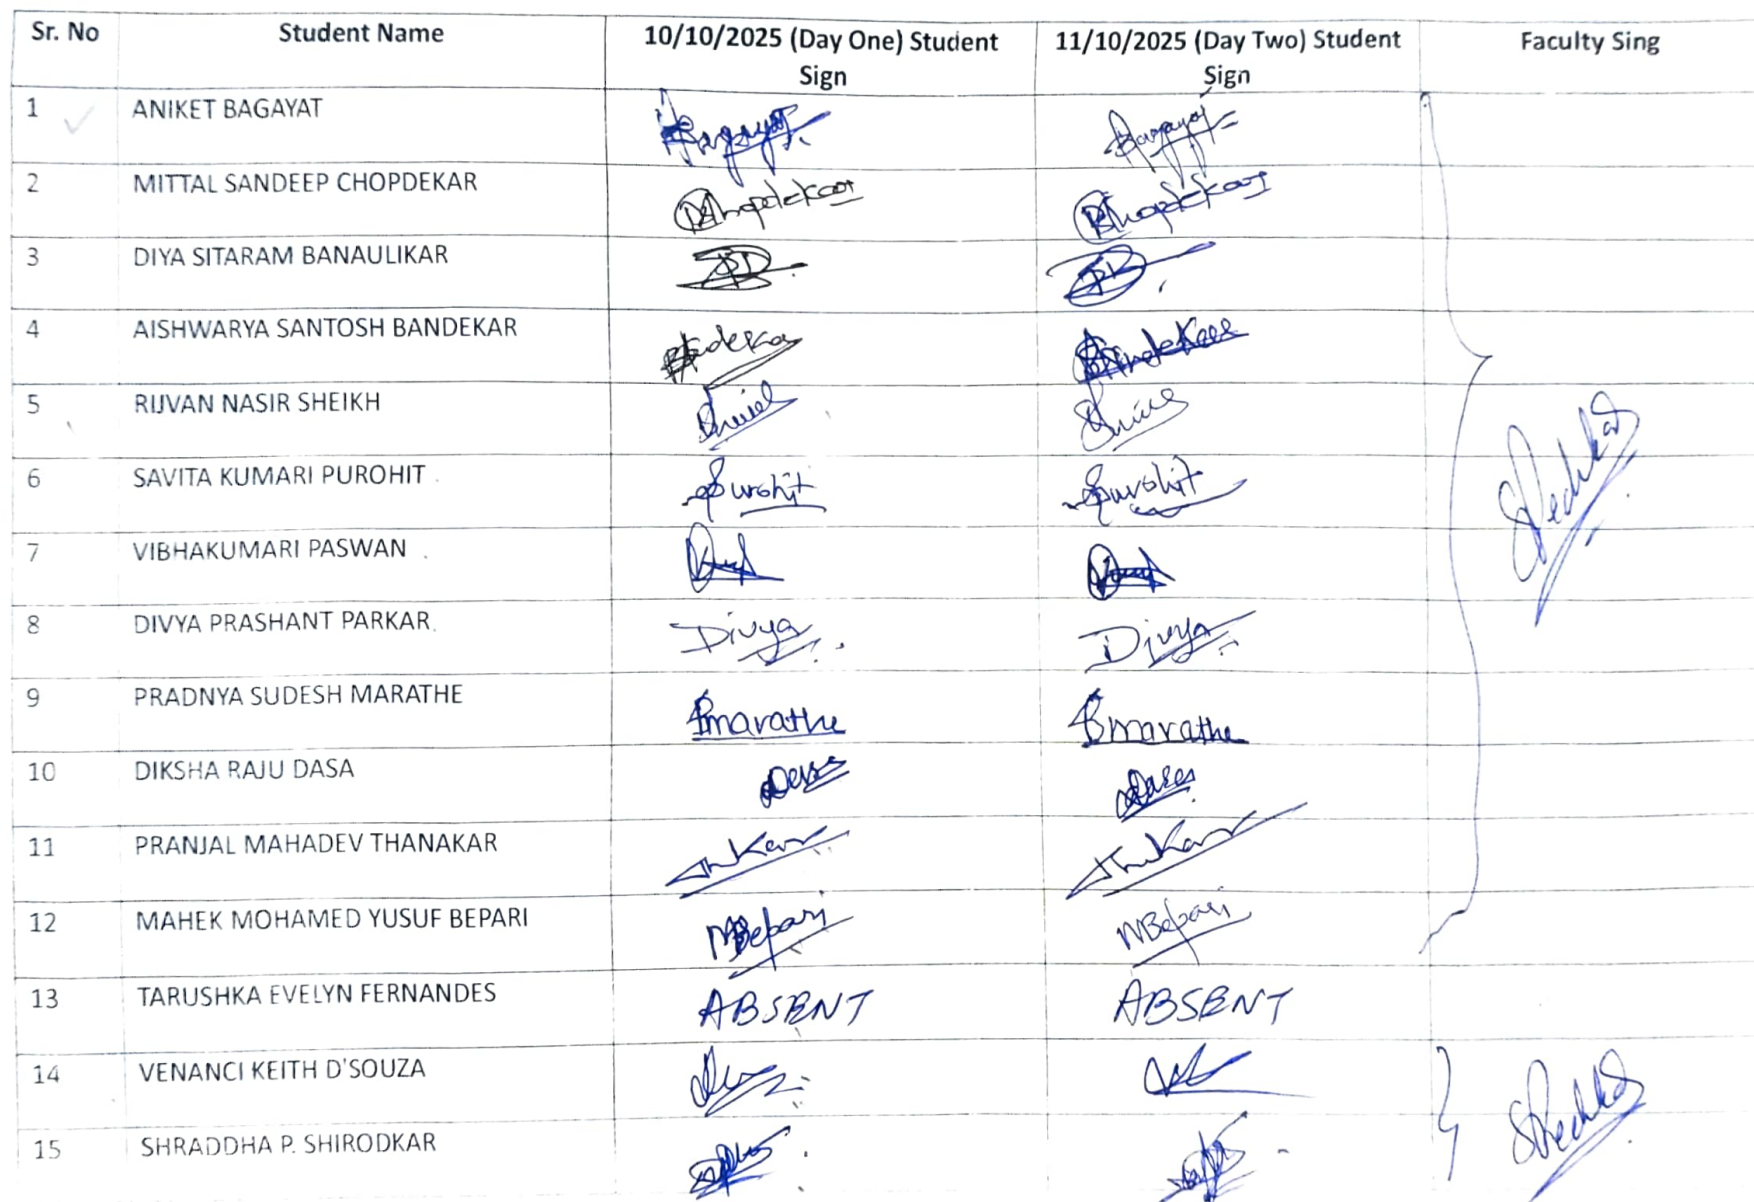 Sr. No Student Name 10/10/2025 (Day One) Student Sign 11/10/2025 (Day Two) Student Sign Faculty Sing
1 ANIKET BAGAYAT Bagayat Bagayat
2 MITTAL SANDEEP CHOPDEKAR Chopdekar Chopdekar
3 DIYA SITARAM BANAULIKAR
4 AISHWARYA SANTOSH BANDEKAR
5 RIJVAN NASIR SHEIKH
6 SAVITA KUMARI PUROHIT Purohit Purohit
7 VIBHAKUMARI PASWAN
8 DIVYA PRASHANT PARKAR Divya Divya
9 PRADNYA SUDESH MARATHE Pmarathe Pmarathe
10 DIKSHA RAJU DASA
11 PRANJAL MAHADEV THANAKAR
12 MAHEK MOHAMED YUSUF BEPARI MBepari MBepari
13 TARUSHKA EVELYN FERNANDES ABSENT ABSENT
14 VENANCI KEITH D'SOUZA
15 SHRADDHA P. SHIRODKAR